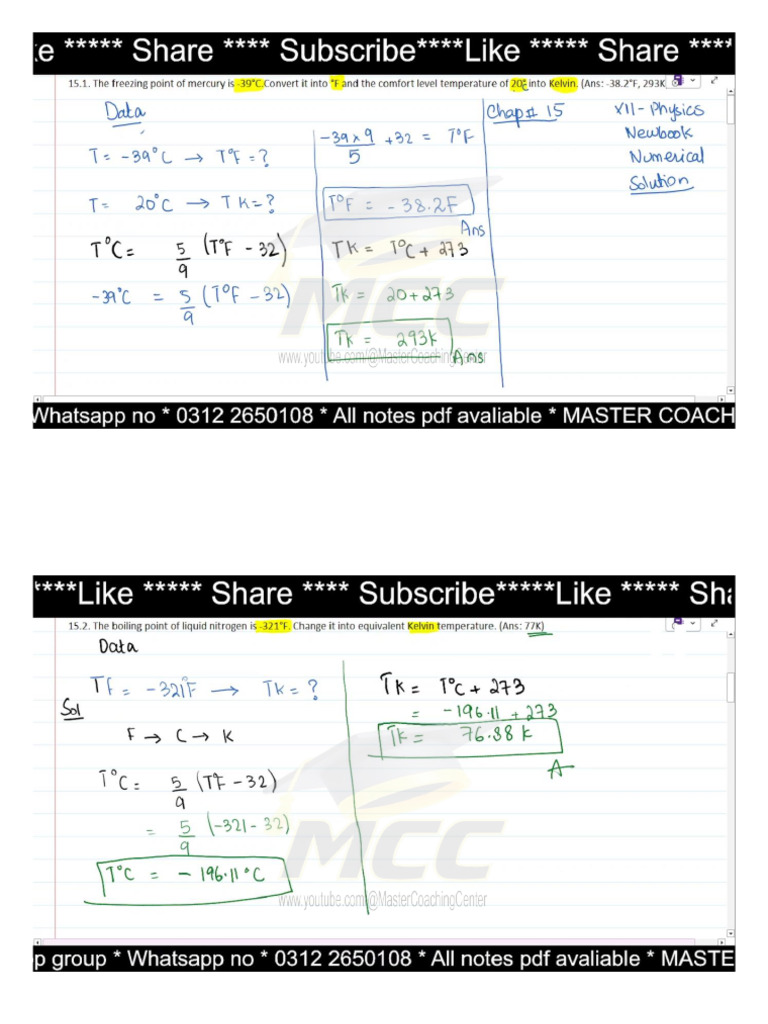 ke ***** Share **** Subscribe****Like ***** Share ****
15.1. The freezing point of mercury is -39°C.Convert it into °F and the comfort level temperature of 20°C into Kelvin. (Ans: -38.2°F, 293K
Data
T = -39°C → T°F = ?
T = 20°C → TK = ?
T°C = 5/9 (T°F - 32)
-39°C = 5/9 (T°F - 32)
-39 x 9/5 + 32 = T°F
T°F = - 38.2F
Ans
TK = T°C + 273
TK = 20 + 273
TK = 293K
Ans
Chap# 15
XII- Physics
New book
Numerical
Solution
MCC
www.youtube.com/@MasterCoachingCenter
Whatsapp no * 0312 2650108 * All notes pdf avaliable * MASTER COACH
****Like ***** Share **** Subscribe*****Like ***** Sha
15.2. The boiling point of liquid nitrogen is -321°F. Change it into equivalent Kelvin temperature. (Ans: 77K)
Data
TF = -321°F → TK = ?
Sol
F → C → K
T°C = 5/9 (T°F - 32)
= 5/9 (-321 - 32)
T°C = - 196.11°C
TK = T°C + 273
= -196.11 + 273
TK = 76.88 K
A
MCC
www.youtube.com/@MasterCoachingCenter
p group * Whatsapp no * 0312 2650108 * All notes pdf avaliable * MASTE